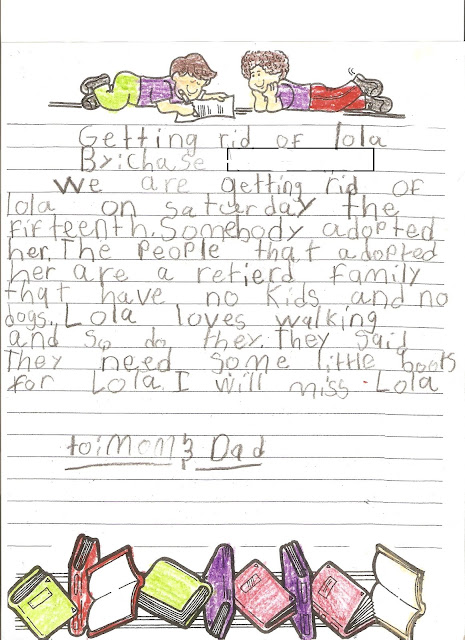 Getting rid of lola
By: Chase
We are getting rid OF
lola on saturday the
fifteenth. Somebody adopted
her. The People that adopted
her are a retierd family
that have no kids and no
dogs. Lola loves walking
and so do they. They said
They need some little boots
for Lola. I will miss Lola
to: Mom & Dad